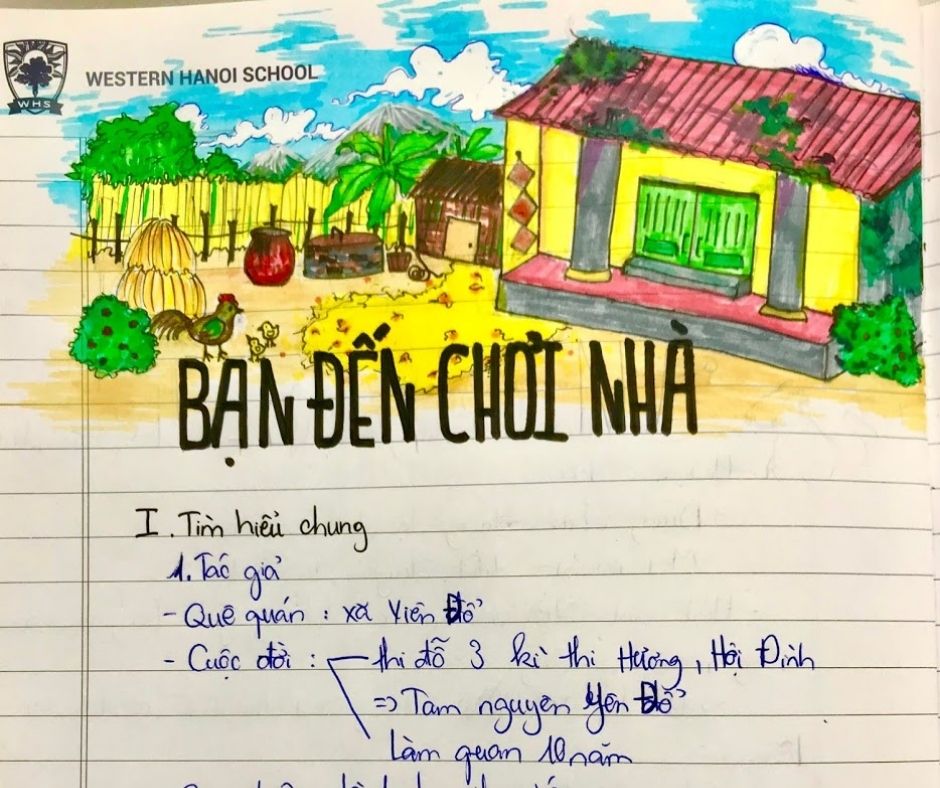 WHS
WESTERN HANOI SCHOOL
BẠN ĐẾN CHƠI NHÀ
I. Tìm hiểu chung
1. Tác giả
- Quê quán : xã Yên Đổ
- Cuộc đời : thi đỗ 3 kì thi Hương, Hội Đình
=> Tam nguyên Yên Đổ
Làm quan 10 năm